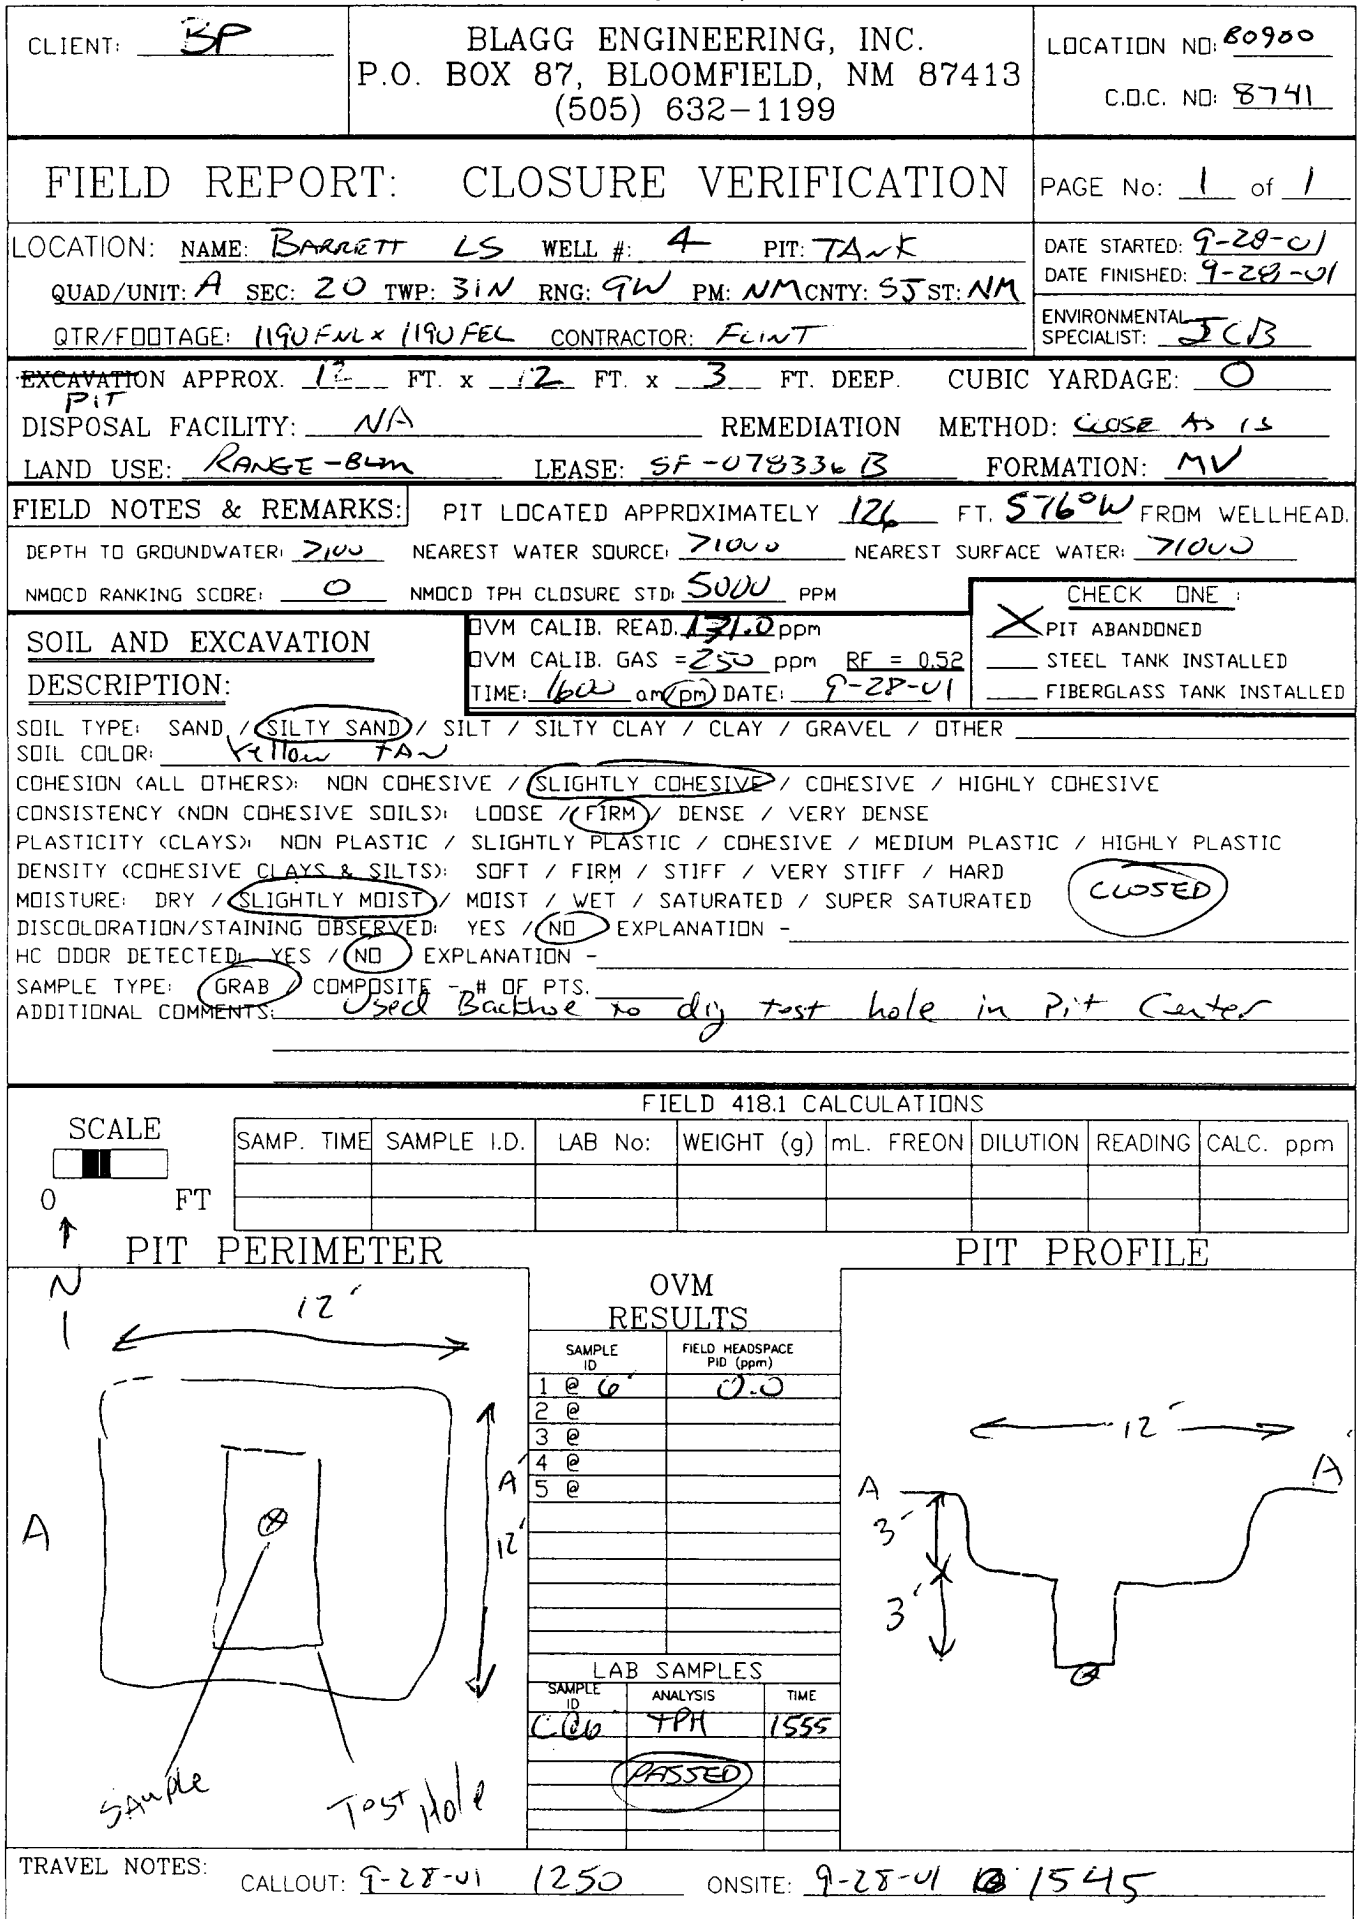 CLIENT: BP
BLAGG ENGINEERING, INC.
P.O. BOX 87, BLOOMFIELD, NM 87413
(505) 632-1199
LOCATION NO: B0900
C.O.C. NO: 8741
FIELD REPORT: CLOSURE VERIFICATION
PAGE No: 1 of 1
LOCATION: NAME: BARRETT LS WELL #: 4 PIT: TANK
QUAD/UNIT: A SEC: 20 TWP: 31N RNG: 9W PM: NM CNTY: SJ ST: NM
QTR/FOOTAGE: 1190 FNL x 1190 FEL CONTRACTOR: FLINT
DATE STARTED: 9-28-01
DATE FINISHED: 9-28-01
ENVIRONMENTAL
SPECIALIST: JCB
EXCAVATION APPROX. 12 FT. x 12 FT. x 3 FT. DEEP. CUBIC YARDAGE: 0
PIT
DISPOSAL FACILITY: NA REMEDIATION METHOD: CLOSE AS IS
LAND USE: RANGE-BLM LEASE: SF-078336B FORMATION: MV
FIELD NOTES & REMARKS: PIT LOCATED APPROXIMATELY 126 FT. S76°W FROM WELLHEAD.
DEPTH TO GROUNDWATER: >100 NEAREST WATER SOURCE: >1000 NEAREST SURFACE WATER: >1000
NMOCD RANKING SCORE: 0 NMOCD TPH CLOSURE STD: 5000 PPM
CHECK ONE :
X PIT ABANDONED
STEEL TANK INSTALLED
FIBERGLASS TANK INSTALLED
SOIL AND EXCAVATION
DESCRIPTION:
OVM CALIB. READ. 131.0 ppm
OVM CALIB. GAS = 250 ppm RF = 0.52
TIME: 1600 am/pm DATE: 9-28-01
SOIL TYPE: SAND / SILTY SAND / SILT / SILTY CLAY / CLAY / GRAVEL / OTHER
SOIL COLOR: Yellow TAN
COHESION (ALL OTHERS): NON COHESIVE / SLIGHTLY COHESIVE / COHESIVE / HIGHLY COHESIVE
CONSISTENCY (NON COHESIVE SOILS): LOOSE / FIRM / DENSE / VERY DENSE
PLASTICITY (CLAYS): NON PLASTIC / SLIGHTLY PLASTIC / COHESIVE / MEDIUM PLASTIC / HIGHLY PLASTIC
DENSITY (COHESIVE CLAYS & SILTS): SOFT / FIRM / STIFF / VERY STIFF / HARD
MOISTURE: DRY / SLIGHTLY MOIST / MOIST / WET / SATURATED / SUPER SATURATED
CLOSED
DISCOLORATION/STAINING OBSERVED: YES / NO EXPLANATION -
HC ODOR DETECTED: YES / NO EXPLANATION -
SAMPLE TYPE: GRAB / COMPOSITE - # OF PTS.
ADDITIONAL COMMENTS: Used Backhoe to dig test hole in Pit Center
SCALE
0 FT
FIELD 418.1 CALCULATIONS
SAMP. TIME SAMPLE I.D. LAB No: WEIGHT (g) mL. FREON DILUTION READING CALC. ppm
PIT PERIMETER
PIT PROFILE
N
12'
A
A'
12'
Sample
Test Hole
OVM
RESULTS
SAMPLE ID FIELD HEADSPACE PID (ppm)
1 @ 6' 0.0
2 @
3 @
4 @
5 @
LAB SAMPLES
SAMPLE ID ANALYSIS TIME
C@6 TPH 1555
PASSED
12'
A
A'
3'
3'
TRAVEL NOTES: CALLOUT: 9-28-01 1250 ONSITE: 9-28-01 1545